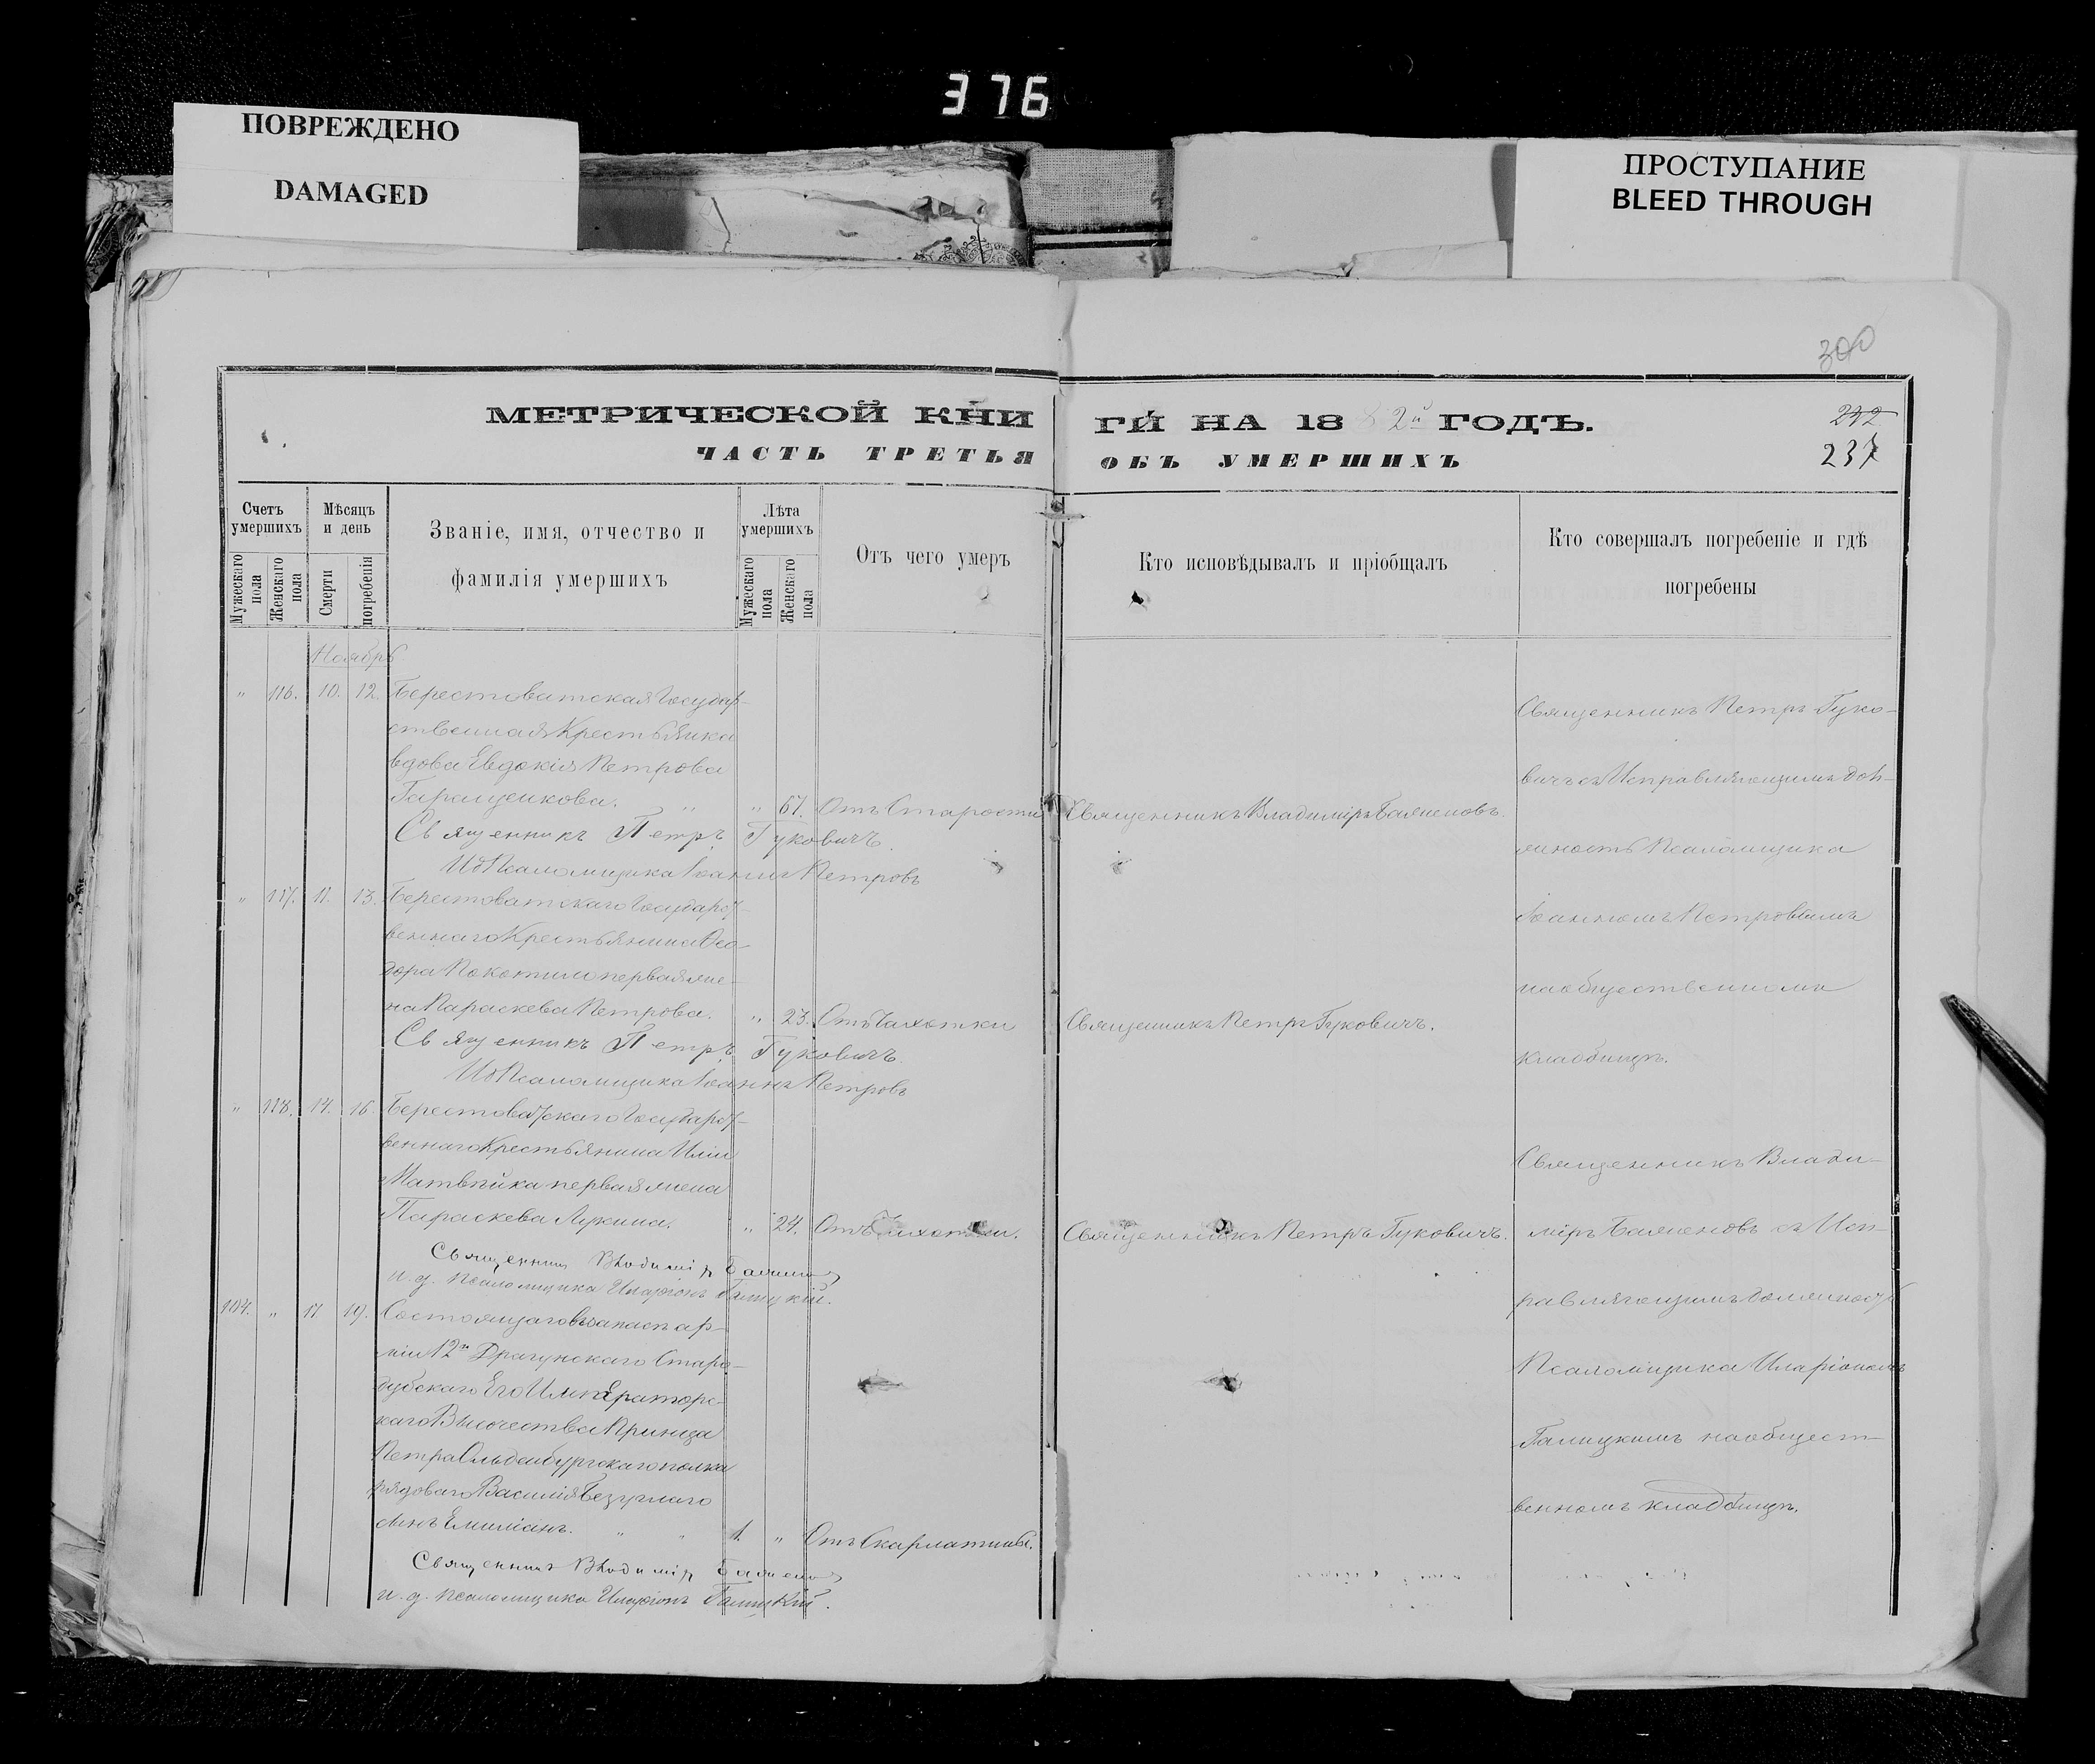 376
ПОВРЕЖДЕНО
DAMAGED
ПРОСТУПАНИЕ
BLEED THROUGH
300
МЕТРИЧЕСКОЙ КНИ
ГИ НА 1882й ГОДЪ.
232
237
ЧАСТЬ ТРЕТЬЯ
ОБЪ УМЕРШИХЪ
Счетъ умершихъ
Мужескаго пола
Женскаго пола
Мѣсяцъ и день
Смерти
погребенія
Званіе, имя, отчество и
фамилія умершихъ
Лѣта умершихъ
Мужескаго пола
Женскаго пола
Отъ чего умеръ
Кто исповѣдывалъ и пріобщалъ
Кто совершалъ погребеніе и гдѣ
погребены
Ноябрь
" 116. 10. 12. Берестоватская Государ-
ственная Крестьянка
вдова Евдокія Петрова
Таращенкова. " " 67. Отъ Старости Священникъ Владиміръ
Священникъ Петръ Гуковичъ.
ИД Псаломщика Іоаннъ Петровъ
Священникъ Петръ Гуко-
вичъ съ Исправляющимъ долж-
ность Псаломщика
Іоанномъ Петровымъ
на общественномъ
кладбищѣ.
" 117. 11. 13. Берестоватскаго Государст-
веннаго Крестьянина Ѳео-
дора Покотило первая же-
на Параскева Петрова. " 23. Отъ Чахотки Священникъ Петръ Гуковичъ.
Священникъ Петръ Гуковичъ.
ИД Псаломщика Іоаннъ Петровъ
" 118. 14. 16. Берестоватскаго Государст-
веннаго Крестьянина Иліи
Матвѣйка первая жена
Параскева Лукина. " 24. Отъ Чахотки. Священникъ Петръ Гуковичъ.
Священникъ Владиміръ
и. д. Псаломщика Иларіонъ Галицкій.
Священникъ Влади-
міръ съ Исп-
равляющимъ должность
Псаломщика Иларіономъ
Галицкимъ на общест-
венномъ кладбищѣ.
104. " 17. 19. Состоящаго въ запасѣ ар-
міи 12го Драгунскаго Старо-
дубскаго Его Императорс-
каго Высочества Принца
Петра Ольденбургскаго полка
рядоваго Василія Безуглаго
сынъ Емиліанъ. " " 1. " Отъ Скарлатины.
Священникъ Владиміръ
и. д. Псаломщика Иларіонъ Галицкій.